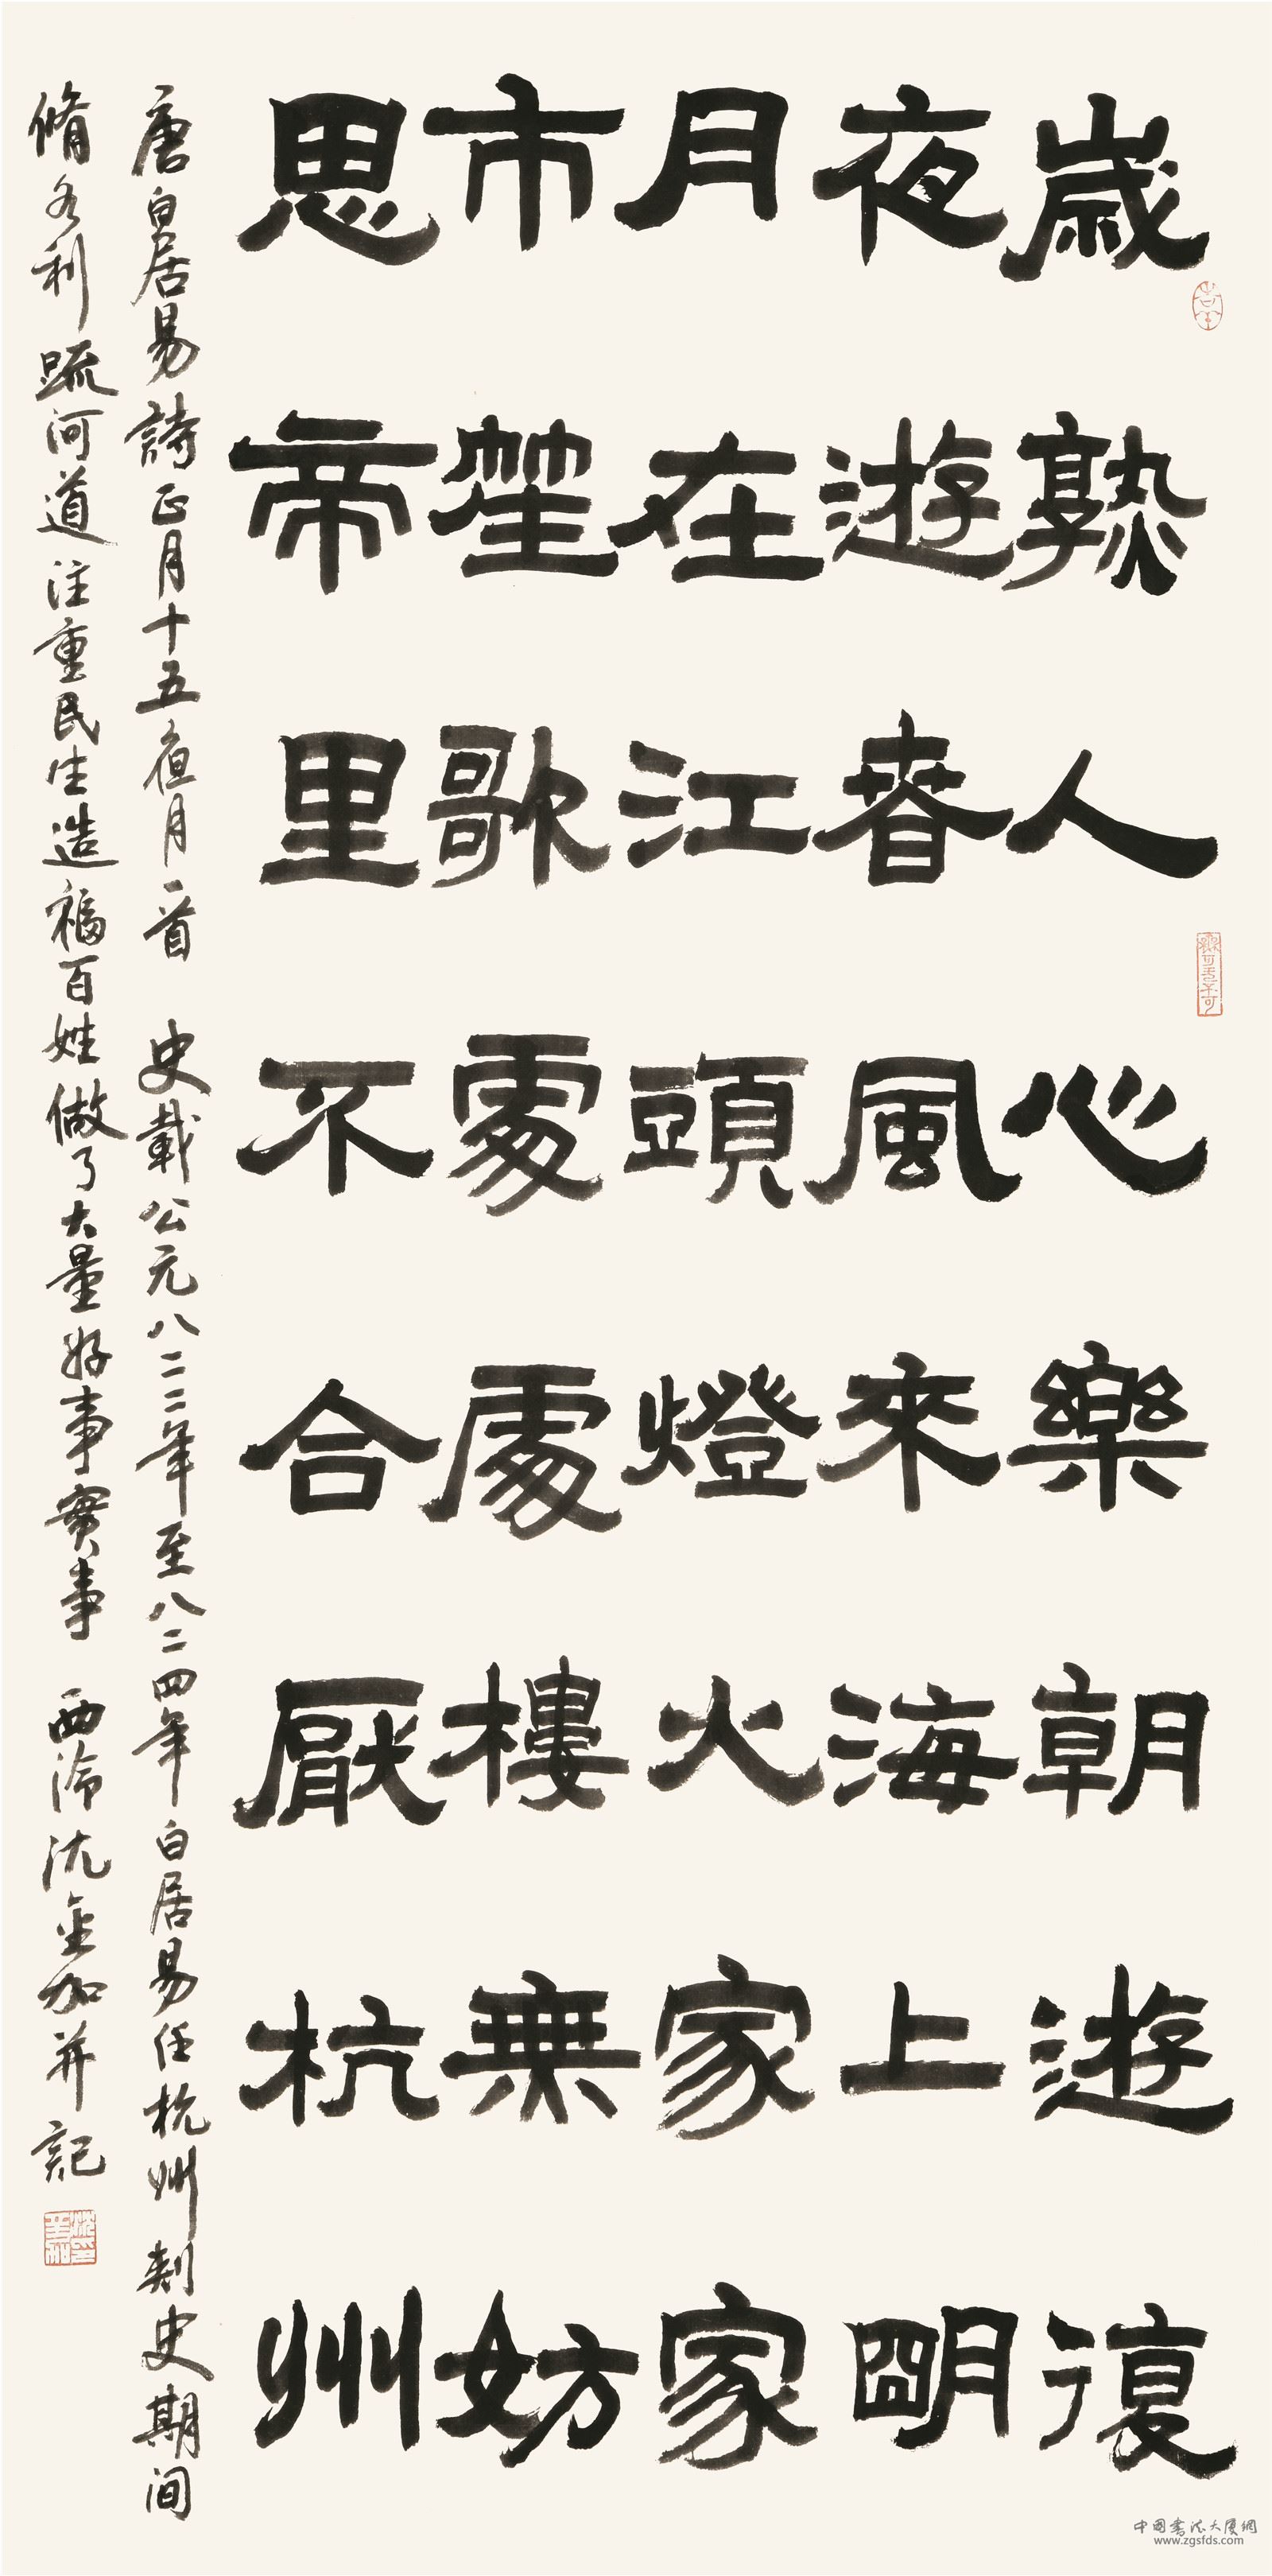 歲熟人心樂朝遊復
夜遊春風來海上明
月在江頭燈火家家
市笙歌處處樓無妨
思帝里不合厭杭州
唐白居易詩正月十五夜月一首 史載公元八二二年至八二四年白居易任杭州刺史期間
脩水利 疏河道 注重民生造福百姓做了大量好事實事 西泠沈金加并記
中國書法大廈網
www.zgsfds.com